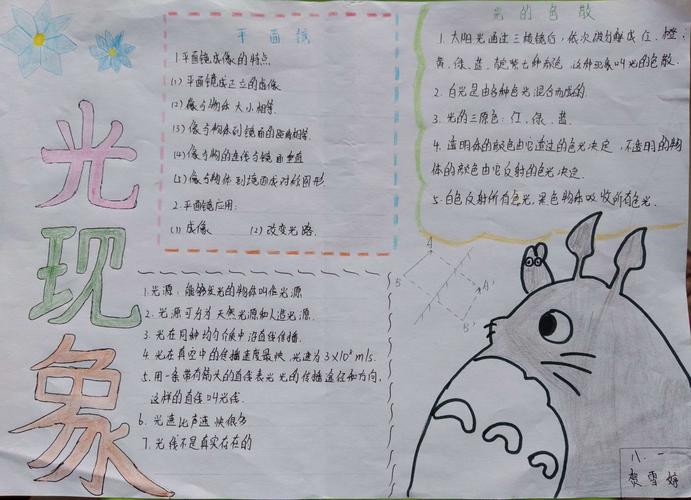 光现象
平面镜
1.平面镜成像的特点
(1) 平面镜成正立的虚像
(2) 像与物体大小相等
(3) 像与物体到镜面的距离相等
(4) 像与物的连线与镜面垂直
(5) 像与物体到镜面成对称图形
2.平面镜应用:
(1) 成像 (2) 改变光路.
光的色散
1. 太阳光通过三棱镜后,依次被分解成红、橙、
黄、绿、蓝、靛紫七种颜色 这种现象叫光的色散.
2. 白光是由各种色光混合而成的
3. 光的三原色:红、绿、蓝.
4. 透明体的颜色由它透过的色光决定,不透明的物
体的颜色由它反射的色光决定.
5. 白色反射所有色光,黑色物体吸收所有色光.
1. 光源:能够发光的物体叫作光源
2. 光源可分为天然光源和人造光源.
3. 光在同种均匀介质中沿直线传播.
4. 光在真空中的传播速度最快,光速为3×10⁸m/s.
5. 用一条带有箭头的直线表光光的传播途径和方向,
这样的直线叫光线.
6. 光速比声速快很多
7. 光线不是真实存在的
A
B
A'
B'
八.一
雪婷